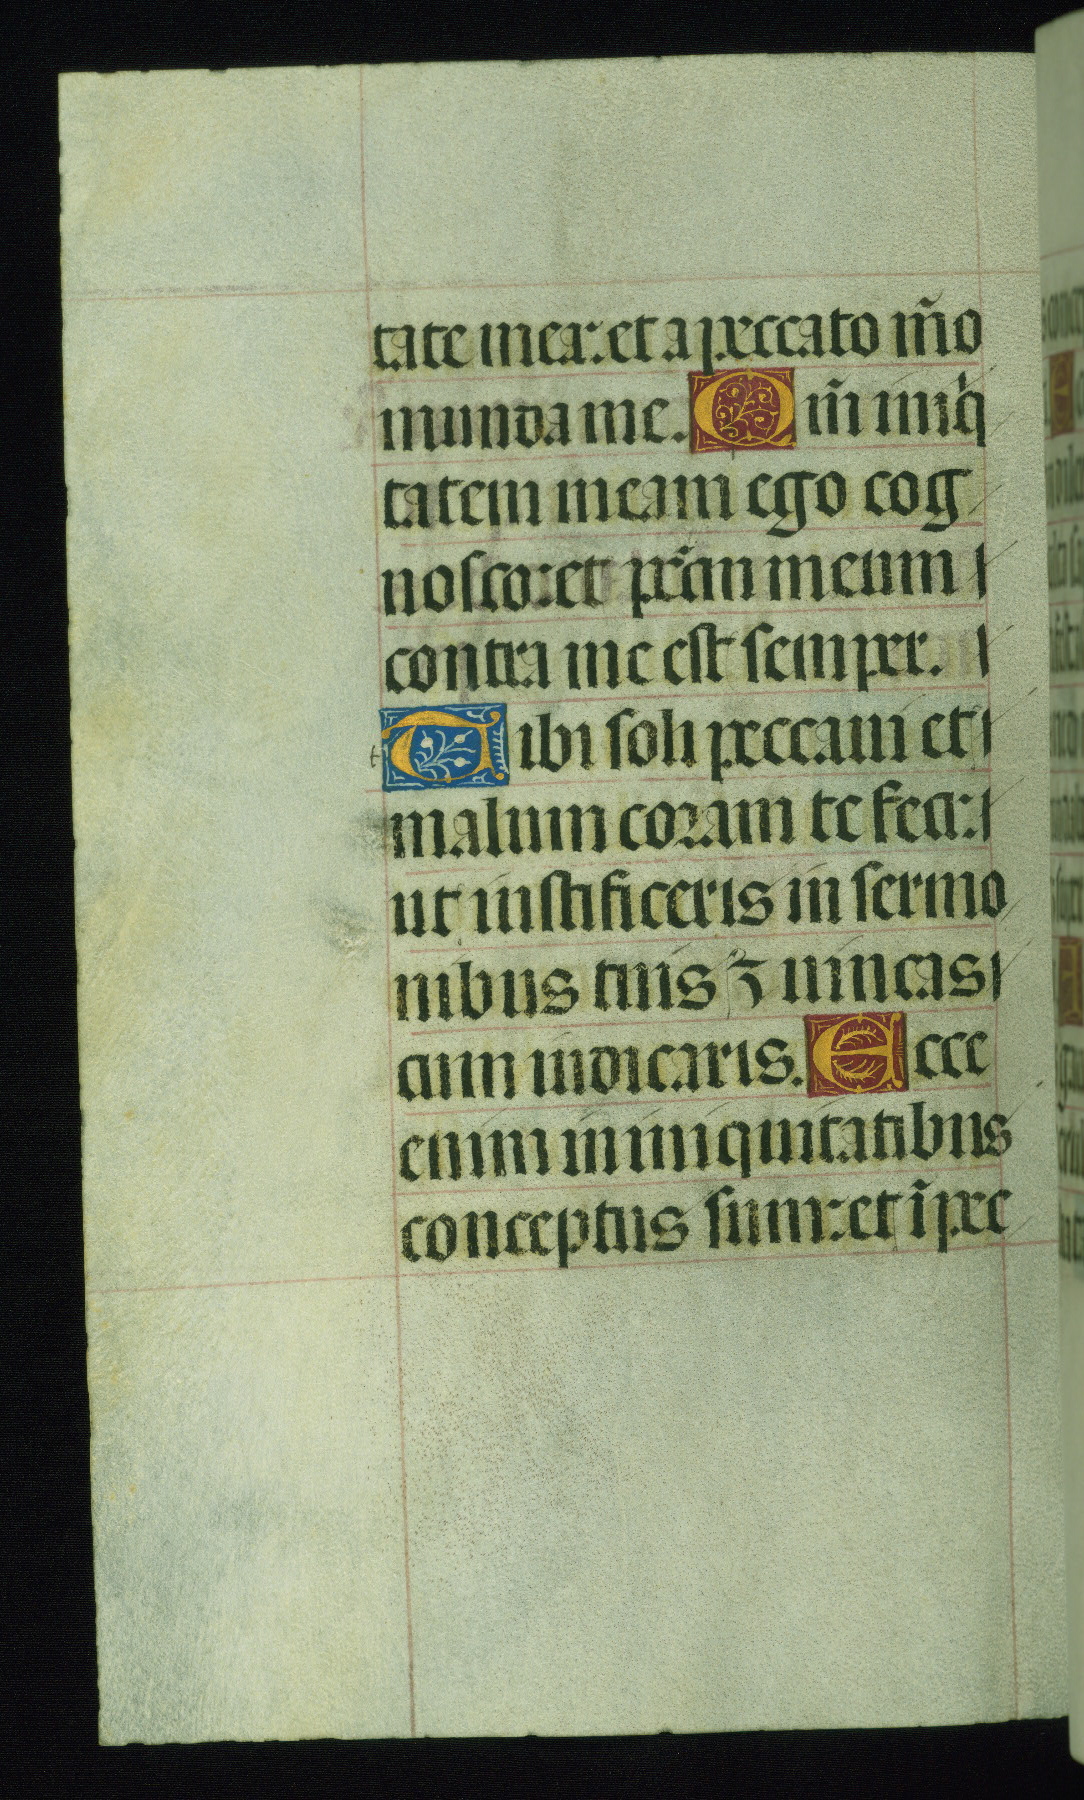 tate mea: et a peccato m̃o
munda me. Qm̃ iniq̇
tatem meam ego cog
nosco: et pc̃m meum
contra me est semper.
Tibi soli peccaui et
malum coram te feci:
ut iustificeris in sermo
nibus tuis ⁊ uincas
cum iudicaris. Ecce
enim in iniquitatibus
conceptus sum: et ĩ pec